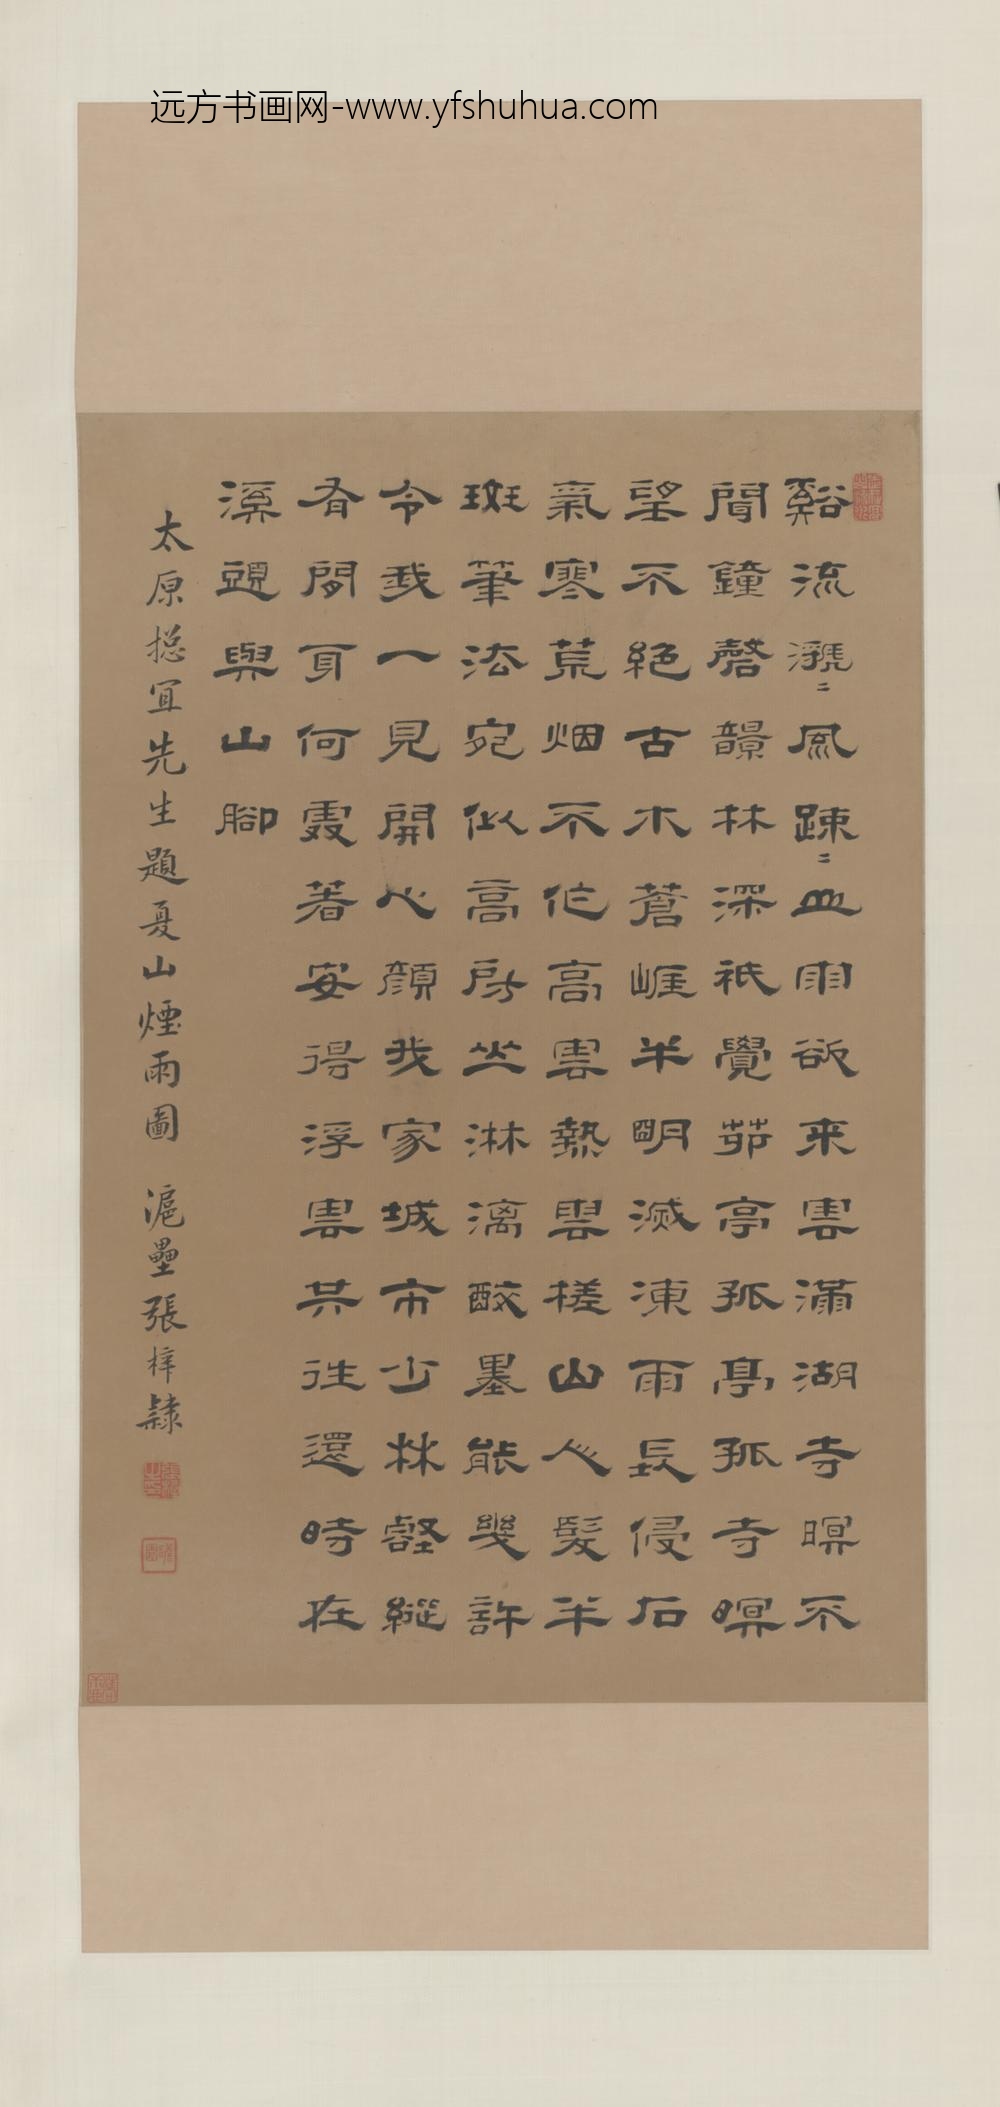 远方书画网-www.yfshuhua.com
谿流㶁〻風疎〻血雨欲来雲滿湖寺暝不
聞鐘磬韻林深祇覺茆亭孤亭孤寺暝
望不絕古木蒼崖半明滅凍雨長侵石
氣寒荒烟不作高雲熱雲槎山人髮半
斑筆法宛似高房山淋漓酸墨能幾許
令我一見開心顔我家城市少林壑縱
有閒身何處着安得浮雲共往還時在
溪頭與山腳
太原揔宜先生題夏山煙雨圖 滬壘張梓隸